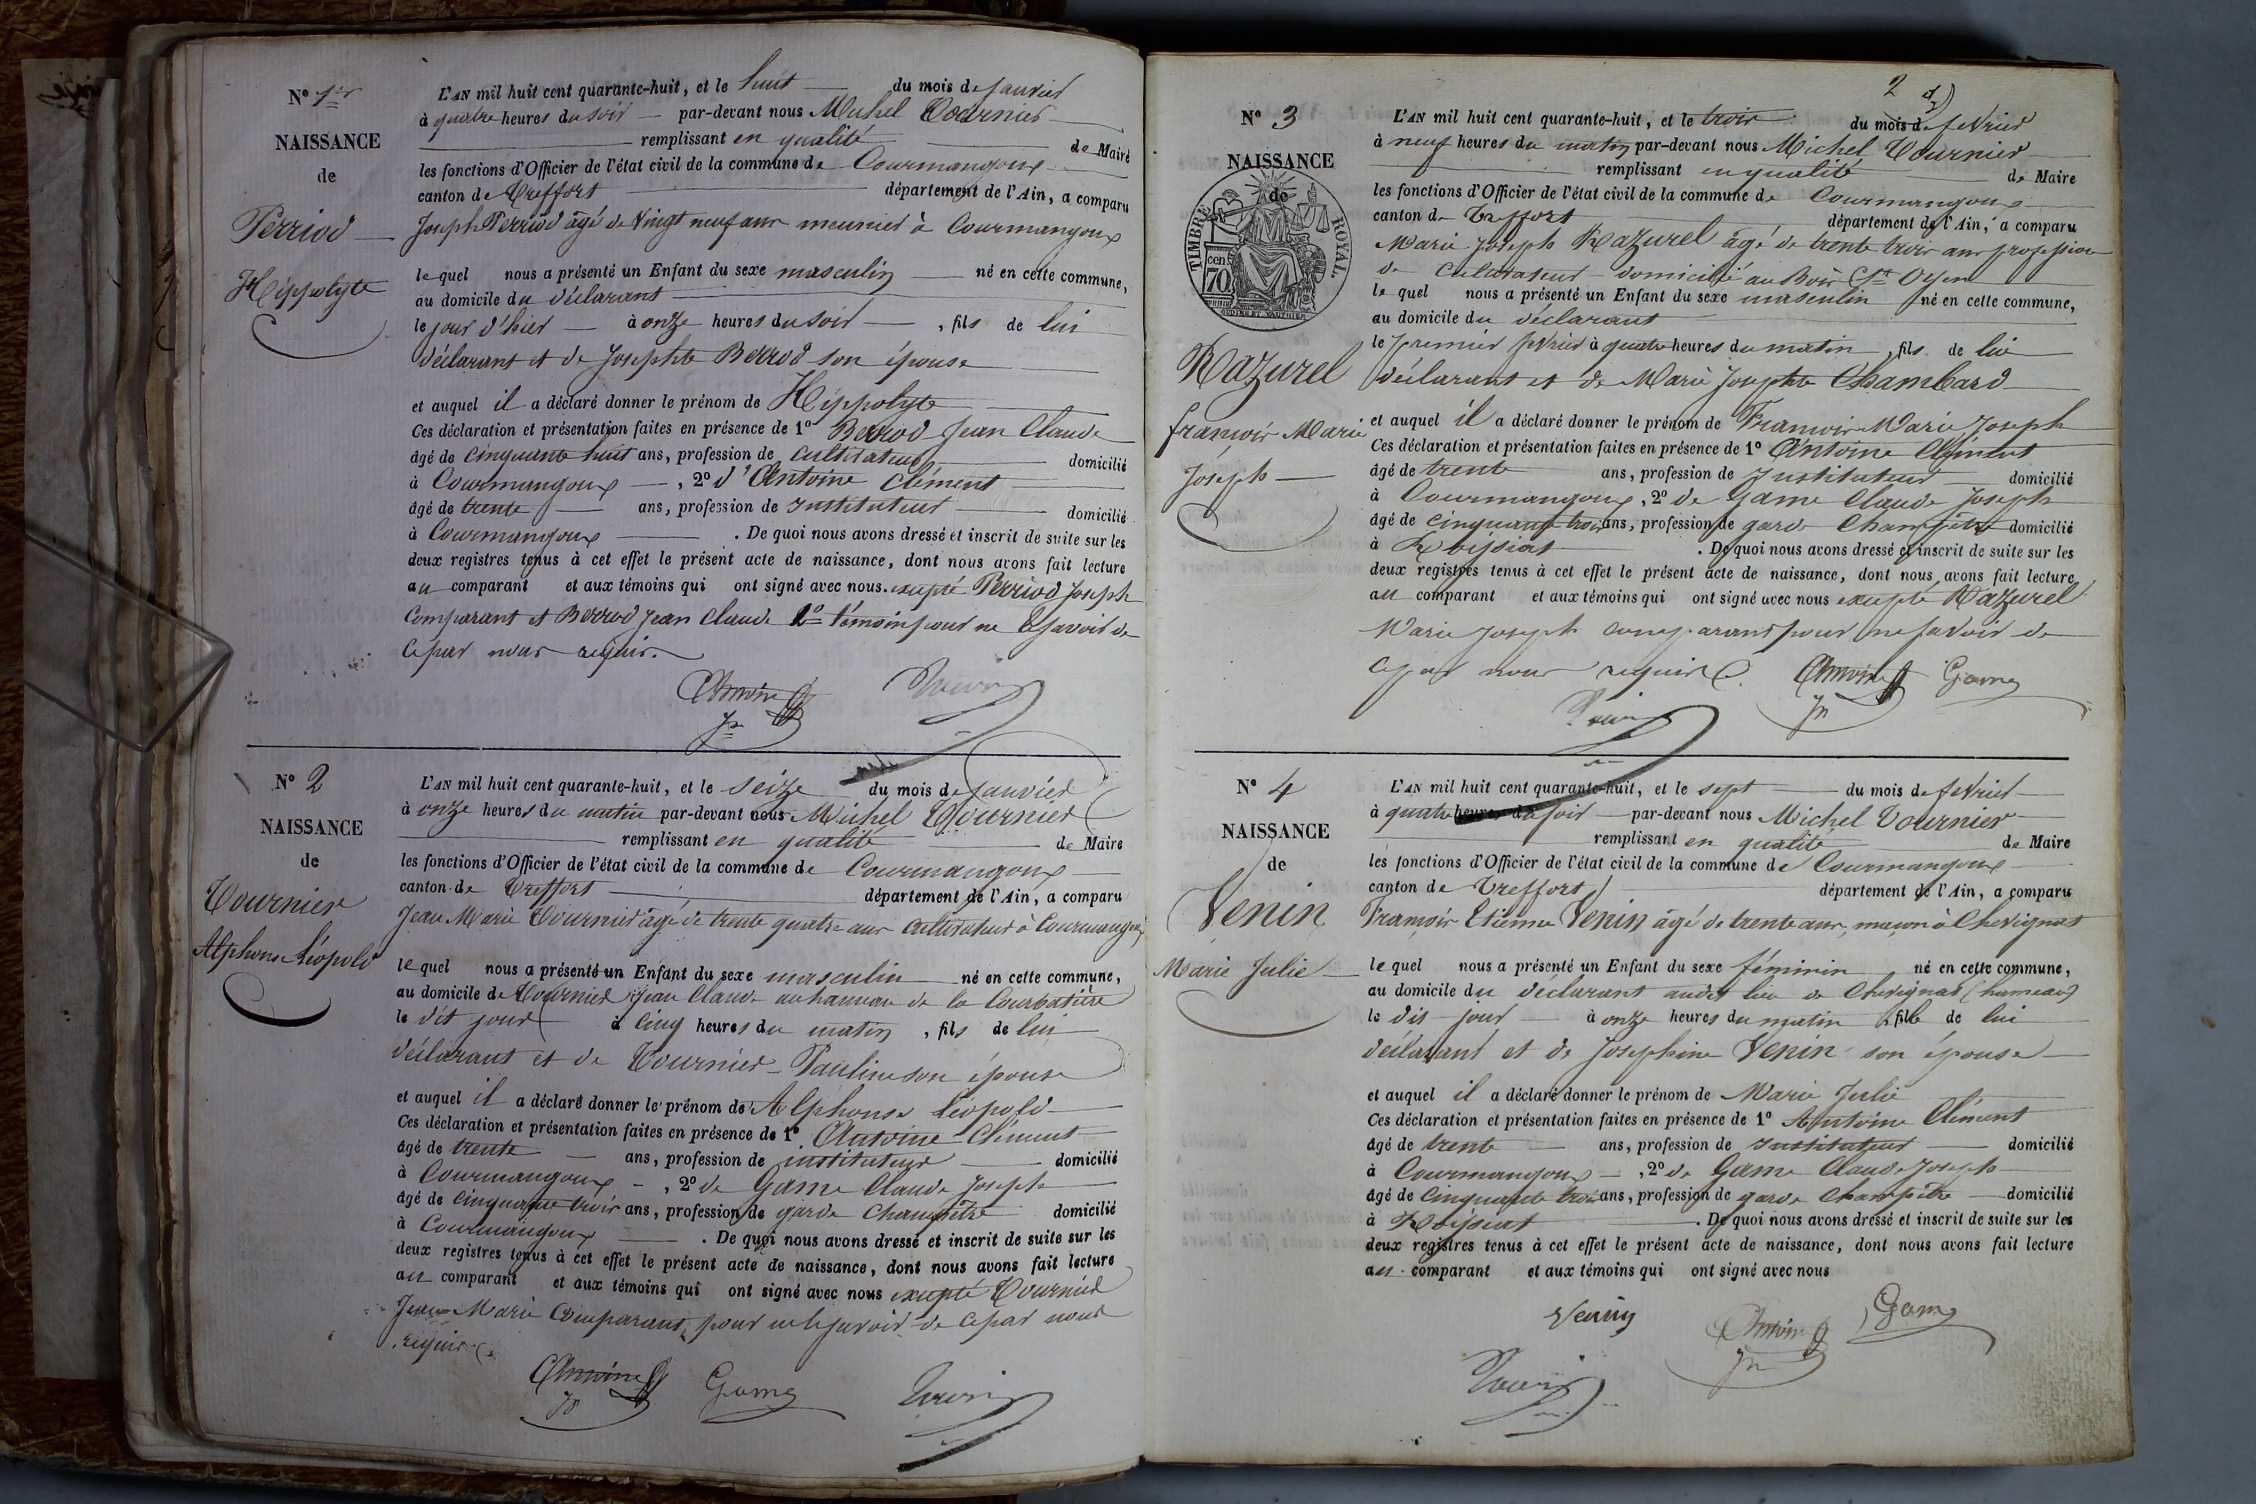 N° 1er
NAISSANCE
de
Perriod
Hippolyte
L'AN mil huit cent quarante-huit, et le huit du mois de janvier
à quatre heures du soir par-devant nous Michel Tournier
remplissant en qualité de Maire
les fonctions d'Officier de l'état civil de la commune de Courmangoux
canton de Treffort département de l'Ain, a comparu
Joseph Perriod âgé de vingt neuf ans meunier à Courmangoux
le quel nous a présenté un Enfant du sexe masculin né en cette commune,
au domicile du déclarant
le jour d'hier à onze heures du soir, fils de lui
déclarant et de Josephte Berrod son épouse
et auquel il a déclaré donner le prénom de Hippolyte
Ces déclaration et présentation faites en présence de 1° Berrod Jean Claude
âgé de cinquante huit ans, profession de cultivateur domicilié
à Courmangoux, 2° d'Antoine Clément
âgé de trente ans, profession de Instituteur domicilié
à Courmangoux. De quoi nous avons dressé et inscrit de suite sur les
deux registres tenus à cet effet le présent acte de naissance, dont nous avons fait lecture
au comparant et aux témoins qui ont signé avec nous. excepté Perriod Joseph
comparant et Berrod Jean Claude 1er témoin pour ne le savoir de
ce par nous requis.
Antoine
N° 2
NAISSANCE
de
Tournier
Alphonse Léopold
L'AN mil huit cent quarante-huit, et le seize du mois de janvier
à onze heures du matin par-devant nous Michel Tournier
remplissant en qualité de Maire
les fonctions d'Officier de l'état civil de la commune de Courmangoux
canton de Treffort département de l'Ain, a comparu
Jean Marie Tournier âgé de trente quatre ans cultivateur à Courmangoux
le quel nous a présenté un Enfant du sexe masculin né en cette commune,
au domicile de Tournier Jean Claude au hameau de la Courbatière
le dit jour à cinq heures du matin, fils de lui
déclarant et de Tournier Pauline son épouse
et auquel il a déclaré donner le prénom de Alphonse Léopold
Ces déclaration et présentation faites en présence de 1° Antoine Clément
âgé de trente ans, profession de instituteur domicilié
à Courmangoux, 2° de Game Claude Joseph
âgé de cinquante trois ans, profession de garde champêtre domicilié
à Courmangoux. De quoi nous avons dressé et inscrit de suite sur les
deux registres tenus à cet effet le présent acte de naissance, dont nous avons fait lecture
au comparant et aux témoins qui ont signé avec nous excepté Tournier
Jean Marie comparant pour ne le savoir de ce par nous
requis.
Antoine Game
2
N° 3
NAISSANCE
de
TIMBRE ROYAL
70 cen
Razurel
François Marie
Joseph
L'AN mil huit cent quarante-huit, et le trois du mois de fevrier
à neuf heures du matin par-devant nous Michel Tournier
remplissant en qualité de Maire
les fonctions d'Officier de l'état civil de la commune de Courmangoux
canton de Treffort département de l'Ain, a comparu
Marie Joseph Razurel âgé de trente trois ans profession
de cultivateur domicilié au Bois St Oyen
le quel nous a présenté un Enfant du sexe masculin né en cette commune,
au domicile du déclarant
le premier fevrier à quatre heures du matin, fils de lui
déclarant et de Marie Josephte Chambard
et auquel il a déclaré donner le prénom de François Marie Joseph
Ces déclaration et présentation faites en présence de 1° Antoine Clément
âgé de trente ans, profession de Instituteur domicilié
à Courmangoux, 2° de Game Claude Joseph
âgé de cinquante trois ans, profession de garde champêtre domicilié
à Roissiat. De quoi nous avons dressé et inscrit de suite sur les
deux registres tenus à cet effet le présent acte de naissance, dont nous avons fait lecture
au comparant et aux témoins qui ont signé avec nous excepté Razurel
Marie Joseph comparant pour ne savoir de
ce par nous requis.
Antoine Game
N° 4
NAISSANCE
de
Venin
Marie Julie
L'AN mil huit cent quarante-huit, et le sept du mois de fevrier
à quatre heures du soir par-devant nous Michel Tournier
remplissant en qualité de Maire
les fonctions d'Officier de l'état civil de la commune de Courmangoux
canton de Treffort département de l'Ain, a comparu
François Etienne Venin âgé de trente ans, maçon à Chevignat
le quel nous a présenté un Enfant du sexe féminin né en cette commune,
au domicile du déclarant audit lieu de Chevignat (hameau)
le dit jour à onze heures du matin fille de lui
déclarant et de Josephine Venin son épouse
et auquel il a déclaré donner le prénom de Marie Julie
Ces déclaration et présentation faites en présence de 1° Antoine Clément
âgé de trente ans, profession de Instituteur domicilié
à Courmangoux, 2° de Game Claude Joseph
âgé de cinquante trois ans, profession de garde champêtre domicilié
à Roissiat. De quoi nous avons dressé et inscrit de suite sur les
deux registres tenus à cet effet le présent acte de naissance, dont nous avons fait lecture
au comparant et aux témoins qui ont signé avec nous
Venin Antoine Game